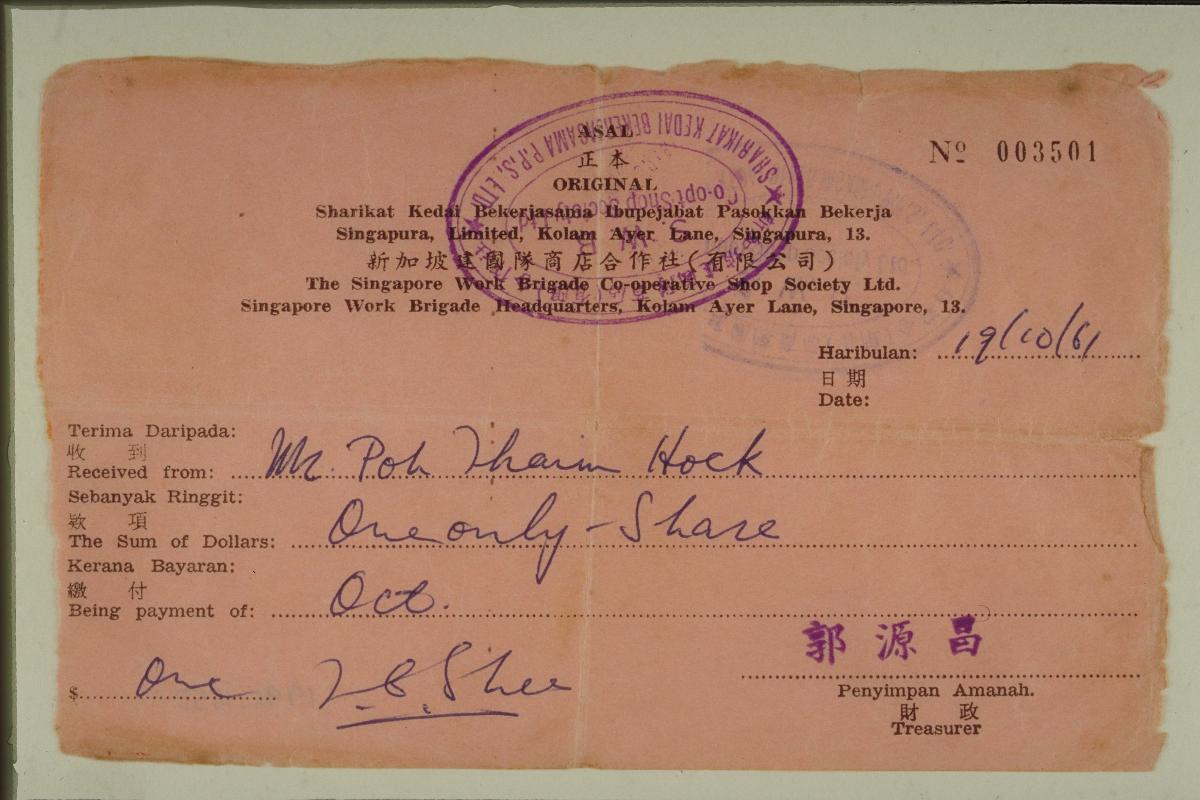 ASAL
正本
ORIGINAL
Nº 003501
Sharikat Kedai Bekerjasama Ibupejabat Pasokkan Bekerja
Singapura, Limited, Kolam Ayer Lane, Singapura, 13.
新加坡建國隊商店合作社(有限公司)
The Singapore Work Brigade Co-operative Shop Society Ltd.
Singapore Work Brigade Headquarters, Kolam Ayer Lane, Singapore, 13.
★ SHARIKAT KEDAI BEKERJASAMA P.P.S. LTD. ★
Co-opt Shop Society Ltd
S. W. B
Haribulan: 19/10/61
日期
Date:
Terima Daripada:
收到
Received from: Mr. Poh Thaim Hock
Sebanyak Ringgit:
欵項
The Sum of Dollars: One only - Share
Kerana Bayaran:
繳付
Being payment of: Oct.
郭源昌
$ One
Penyimpan Amanah.
財政
Treasurer